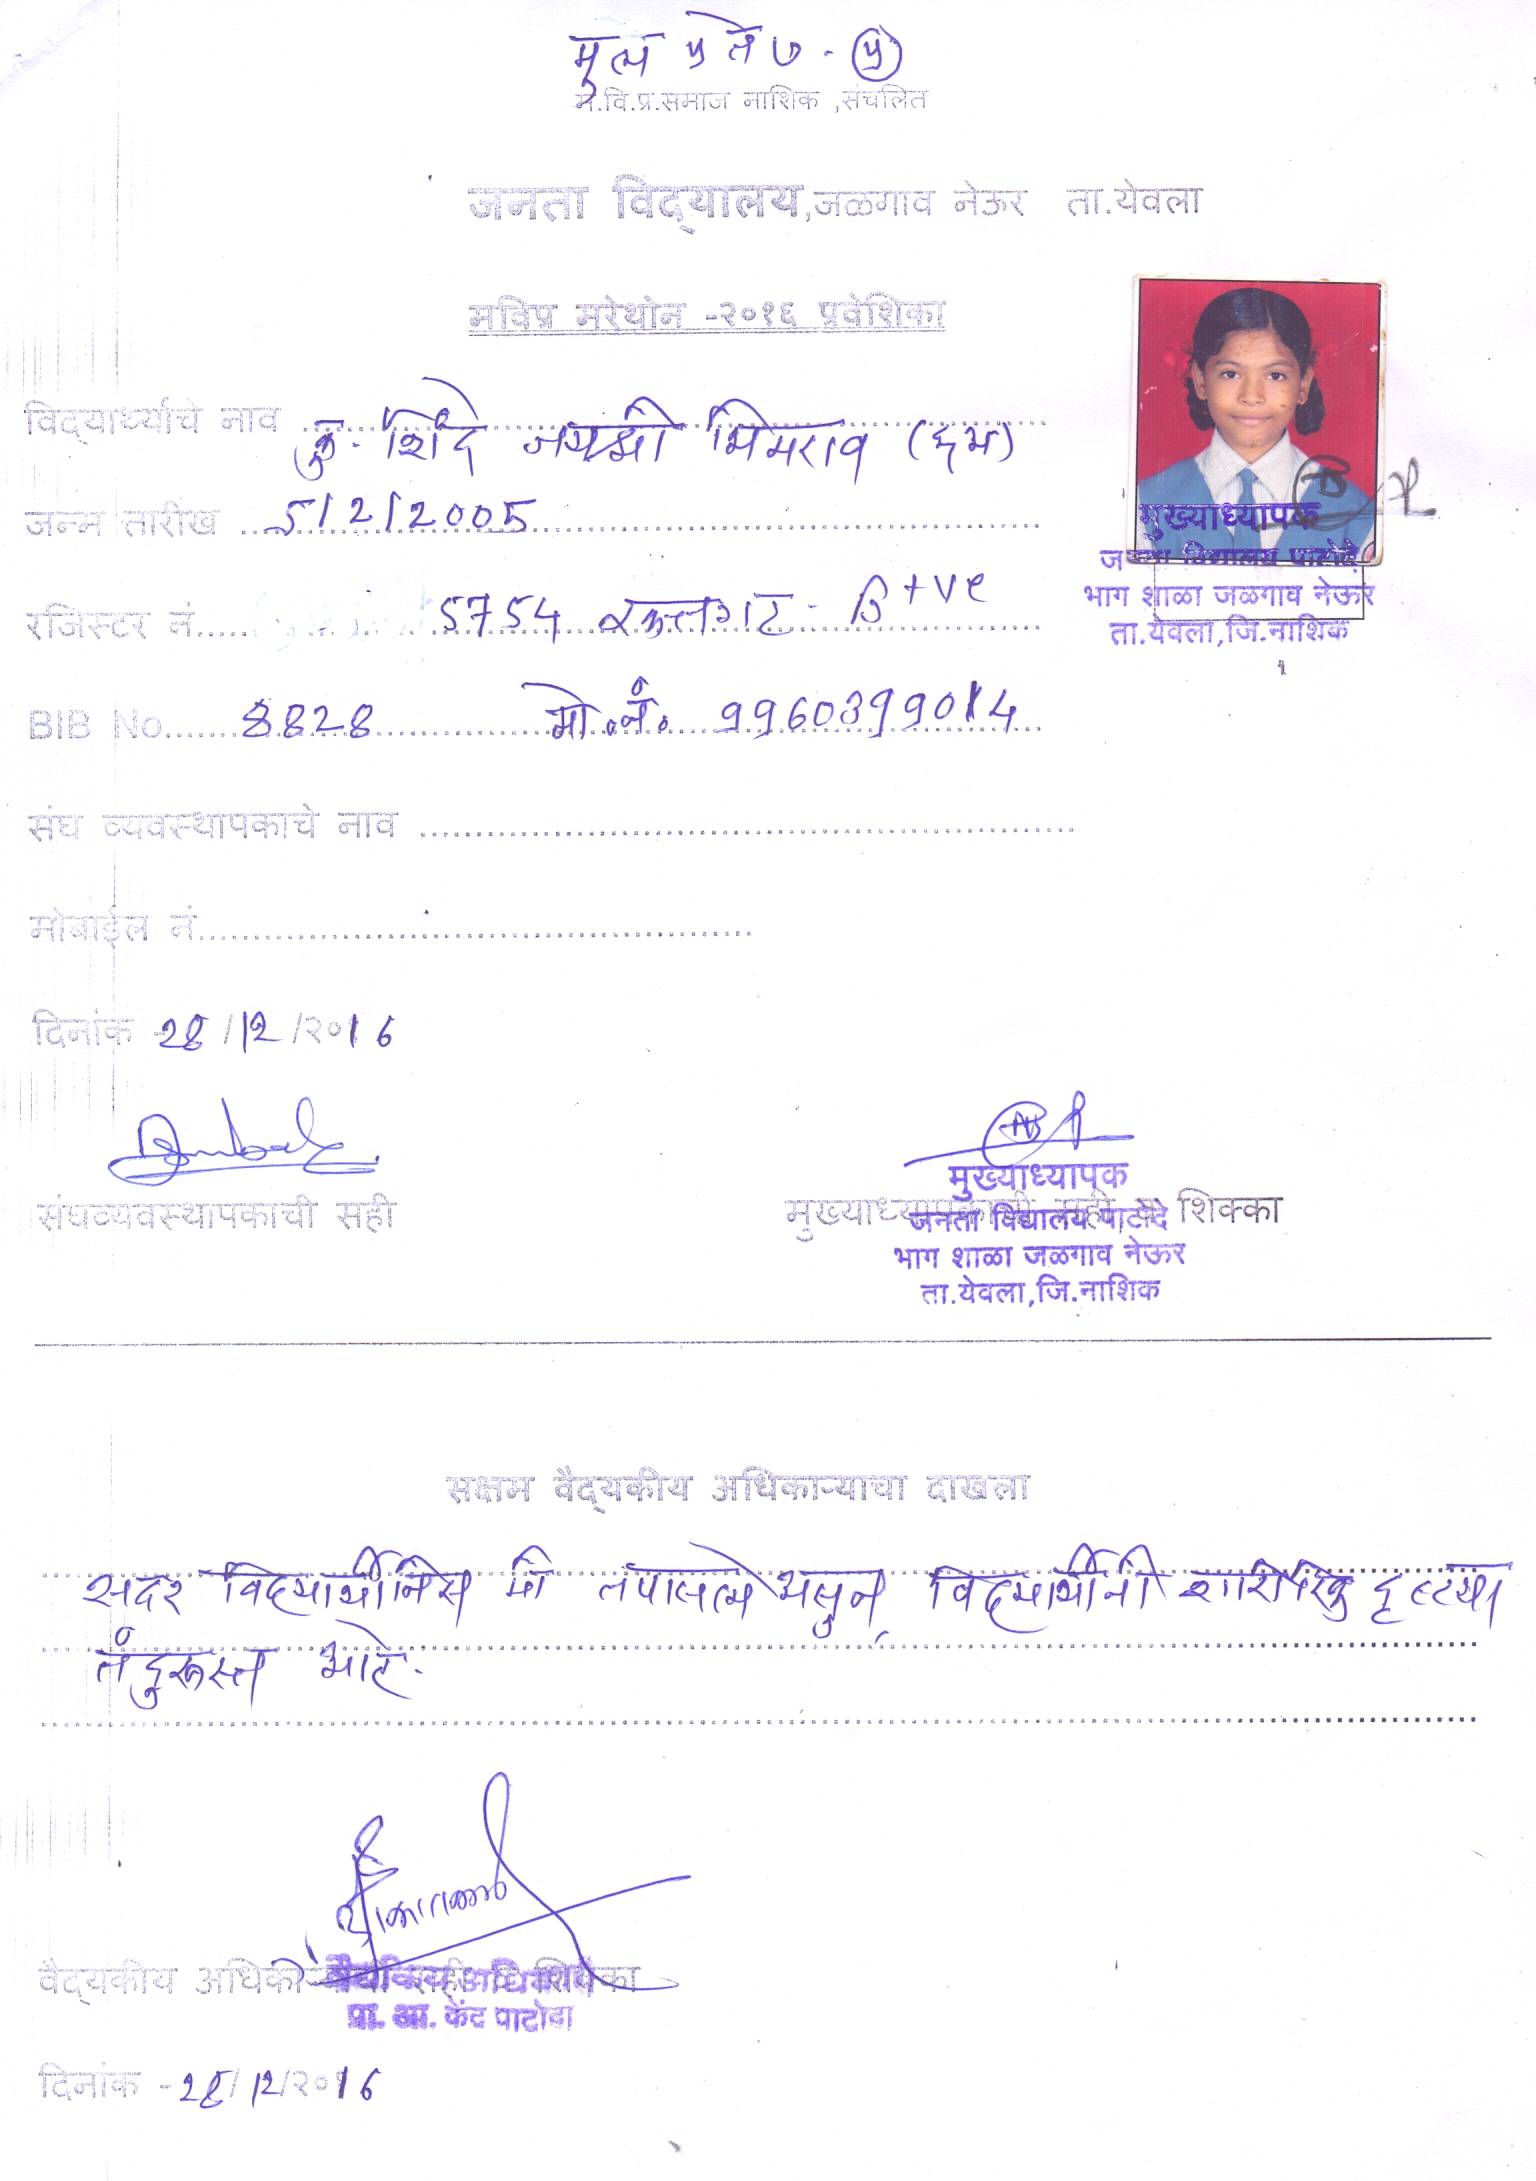 म.वि.प्र.समाज नाशिक ,संचलित
जनता विद्यालय,जळगाव नेऊर ता.येवला
मविप्र मरेथोन -२०१६ प्रवेशिका
विद्यार्थ्याचे नाव कु. शिंदे जयश्री भिमराव
जन्म तारीख 5/2/2005
रजिस्टर नं. 5754 रक्तगट - B +ve
BIB No. 8828 मो.नं. 9960399014
मुख्याध्यापक
जनता विद्यालय पाटोदे
भाग शाळा जळगाव नेऊर
ता.येवला,जि.नाशिक
संघ व्यवस्थापकाचे नाव
मोबाईल नं.
दिनांक -28/12/२०16
संघव्यवस्थापकाची सही
मुख्याध्यापकाची सही व शिक्का
मुख्याध्यापक
जनता विद्यालय पाटोदे
भाग शाळा जळगाव नेऊर
ता.येवला,जि.नाशिक
सक्षम वैद्यकीय अधिकाऱ्याचा दाखला
सदर विद्यार्थीनिस मी तपासले असुन, विद्यार्थीनी शारीरिक दृष्ट्या
तंदुरूस्त आहे.
वैद्यकीय अधिकाऱ्याची सही व शिक्का
वैद्यकिय अधिकारी
प्रा. आ. केंद्र पाटोदा
दिनांक -28/12/२०16